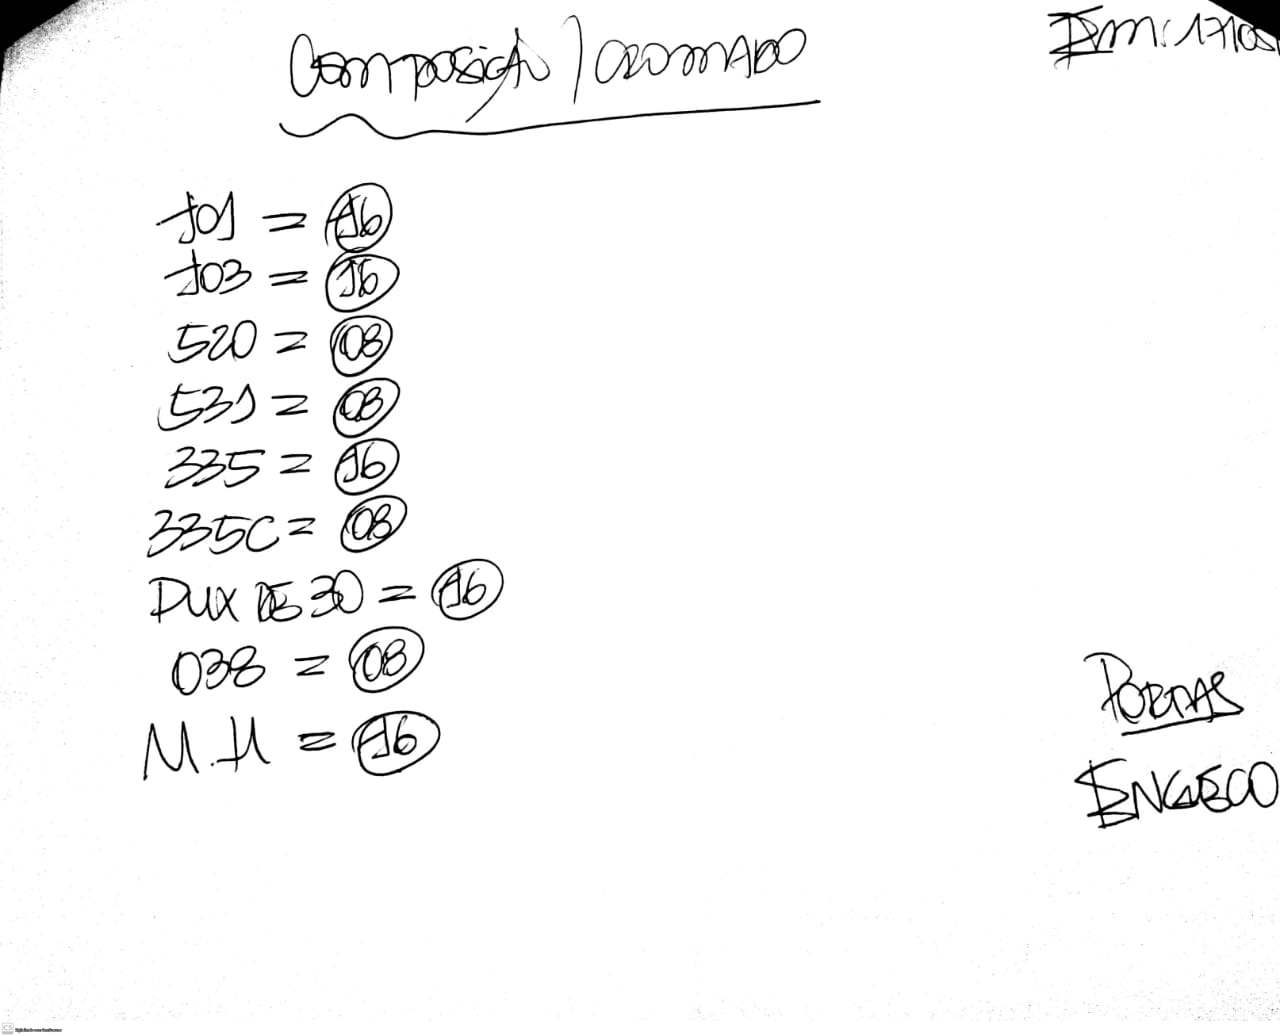 Composição / CROMADO
Em: 17/05
701 = 16
703 = 16
520 = 08
531 = 08
335 = 16
335C = 08
DUX DE 30 = 16
038 = 08
M.H = 16
PORTAS
ENGECO
CS